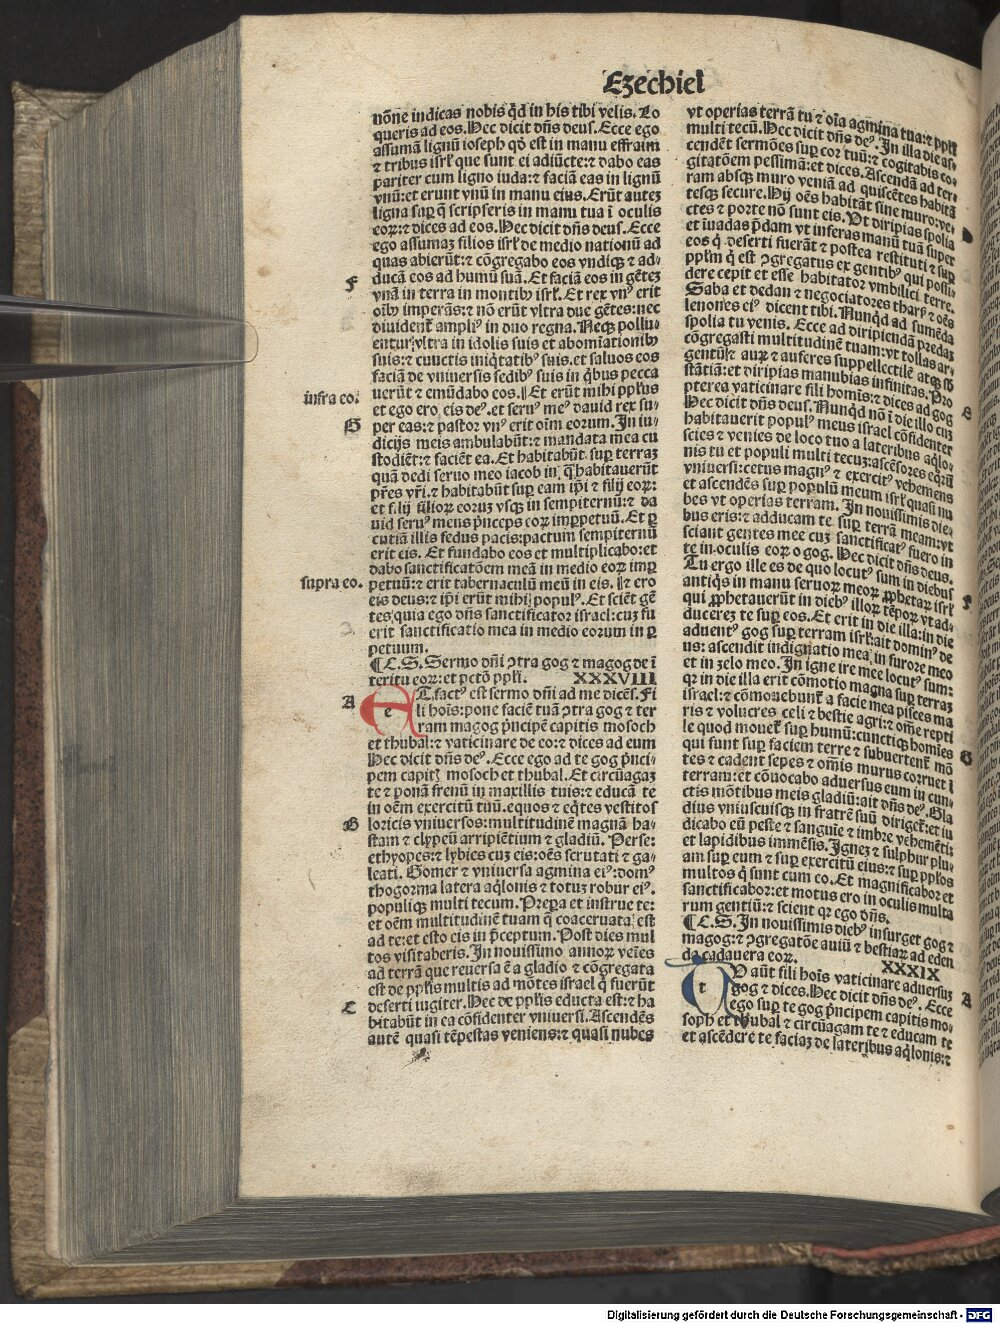 Ezechiel
nōne indicas nobis qd̄ in his tibi velis. Lo
queris ad eos. Hec dicit dn̄s deus. Ecce ego
assumā lignū ioseph qd̄ est in manu effraim
⁊ tribus isrl̄ que sunt ei adiūcte: ⁊ dabo eas
pariter cum ligno iuda: ⁊ faciā eas in lignū
vnū: et erunt vnū in manu eius. Erūt autez
ligna suꝑ q̄ scripseris in manu tua ī oculis
eoꝝ: ⁊ dices ad eos. Hec dicit dn̄s deus. Ecce
ego assumaz filios isrl̄ de medio nationū ad
quas abierūt: ⁊ cōgregabo eos vndiqꝫ ⁊ ad-
ducā eos ad humū suā. Et faciā eos in gētez
F
vnā in terra in montibꝫ isrl̄. Et rex vnꝰ erit
oībꝫ imperās: ⁊ nō erūt vltra due gētes: nec
diuident̄ ampliꝰ in duo regna. Neqꝫ pollu-
entur vltra in idolis suis et abomīationibꝫ
suis: ⁊ cunctis iniq̇tatibꝰ suis. et saluos eos
faciā de vniuersis sedibꝰ suis in q̇bus pecca
uerūt ⁊ emūdabo eos. Et erūt mihi ppl̄us
infra eo.
et ego ero eis deꝰ. et seruꝰ meꝰ dauid rex su-
G
per eas: et pastor vnꝰ erit oīm eorum. In iu-
dicijs meis ambulabūt: ⁊ mandata mea cu
stodiēt: ⁊ faciēt ea. Et habitabūt suꝑ terraz
quā dedi seruo meo iacob in q̄ habitauerūt
pr̄es vr̄i. ⁊ habitabūt suꝑ eam ip̄i ⁊ filij eoꝝ:
et filij filioꝝ eoruz vsqꝫ in sempiternū: ⁊ da
uid seruꝰ meus p̄nceps eoꝝ imꝑpetuū. Et ꝑ
cutiā illis fedus pacis: pactum sempiternū
erit eis. Et fundabo eos et multiplicabo: et
dabo sanctificatōem meā in medio eoꝝ imꝑ
supra eo.
petuū: ⁊ erit tabernaculū meū in eis. ⁊ ero
eis deus: ⁊ ip̄i erūt mihi populꝰ. Et sciēt gē
tes quia ego dn̄s sanctificator israel: cuz fu
erit sanctificatio mea in medio eorum in ꝑ
petuum.
¶ C. S. Sermo dn̄i ↄtra gog ⁊ magog de ī
teritu eoꝝ: et pctō ppl̄i. XXXVIII
A
ET factꝰ est sermo dn̄i ad me dicēs. Fi
li hoīs: pone faciē tuā ↄtra gog ⁊ ter
ram magog p̄ncipē capitis mosoch
et thubal: ⁊ vaticinare de eo: ⁊ dices ad eum
Hec dicit dn̄s deꝰ. Ecce ego ad te gog p̄nci-
pem capitꝭ mosoch et thubal. Et circūagaz
te ⁊ ponā frenū in maxillis tuis: ⁊ educā te
in oēm exercitū tuū. equos ⁊ eq̇tes vestitos
B
loricis vniuersos: multitudinē magnā ha-
stam ⁊ clypeū arripiētium ⁊ gladiū. Perse:
ethyopes: ⁊ lybies cuz eis: oēs scutati ⁊ ga-
leati. Gomer ⁊ vniuersa agmina eiꝰ: domꝰ
thogorma latera aq̇lonis ⁊ totuz robur eiꝰ.
populiqꝫ multi tecum. Prepa et instrue te:
et oēm multitudinē tuam q̄ coaceruata est
ad te: et esto eis in p̄ceptum. Post dies mul
tos visitaberis. In nouissimo annoꝝ veīes
ad terrā que reuersa ē a gladio ⁊ cōgregata
est de ppl̄is multis ad mōtes israel q̇ fuerūt
C
deserti iugiter. Hec de ppl̄is educta est: ⁊ ha
bitabūt in ea cōfidenter vniuersi. Ascendēs
autē quasi tēpestas veniens: ⁊ quasi nubes
vt operias terrā tu ⁊ oīa agmina tua: ⁊ ppl̄i
multi tecū. Hec dicit dn̄s deꝰ. In illa die as-
cendēt sermōes suꝑ cor tuū: ⁊ cogitabis co-
gitatōem pessimā: et dices. Ascendā ad ter-
ram absqꝫ muro veniā ad quiscētes habitā
tesqꝫ secure. Hij oēs habitāt sine muro: ve-
ctes ⁊ porte nō sunt eis. Vt diripias spolia
et īuadas p̄dam vt inferas manū tuā super
eos q̇ deserti fuerāt ⁊ postea restituti ⁊ suꝑ
ppl̄m q̇ est ↄgregatus ex gentibꝰ qui possi-
dere cepit et esse habitator vmbilici terre.
Saba et dedan ⁊ negociatores tharꝭ ⁊ oēs
leones eiꝰ dicent tibi. Nunqd̄ ad sumēda
spolia tu venis. Ecce ad diripiendā predaz
cōgregasti multitudinē tuam: vt tollas ar-
gentū: ⁊ auꝝ ⁊ auferes suppellectilē atqꝫ sb̄
stātiā: et diripias manubias infinitas. Pro
D
pterea vaticinare fili homīs: ⁊ dices ad gog
Hec dicit dn̄s deus. Nunqd̄ nō ī die illo cuz
habitauerit populꝰ meus israel cōfidenter
scies ⁊ venies de loco tuo a lateribus aq̇lo-
nis tu et populi multi tecuz: ascēsores eqꝝū
vniuersi: cetus magnꝰ ⁊ exercitꝰ vehemens
et ascendēs suꝑ populū meum isrl̄ quasi nu
bes vt operias terram. In nouissimis die-
bus eris: ⁊ adducam te suꝑ terrā meam: vt
sciant gentes mee cuz sanctificatꝰ fuero in
te in oculis eoꝝ o gog. Hec dicit dn̄s deus.
Tu ergo ille es de quo locutꝰ sum in diebus
F
antiq̇s in manu seruoꝝ meoꝝ ꝓphetaꝝ isrl̄
qui ꝓphetauerūt in diebꝰ illoꝝ tēpoꝝ vt ad-
ducerez te suꝑ eos. Et erit in die illa: in die
aduentꝰ gog suꝑ terram isrl̄: ait dominꝰ de
us: ascendit indignatio mea in furore meo
et in zelo meo. In igne ire mee locutꝰ sum:
qꝛ in die illa erit cōmotio magna suꝑ terraz
israel: ⁊ cōmouebunt̄ a facie mea pisces ma
ris ⁊ volucres celi ⁊ bestie agri: ⁊ om̄e repti
le quod mouet̄ suꝑ humū: cunctiqꝫ homīes
G
qui sunt suꝑ faciem terre ⁊ subuertent̄ mō
tes ⁊ cadent sepes ⁊ om̄is murus corruet ī
terram: et cōuocabo aduersus eum in cun-
ctis mōtibus meis gladiū: ait dn̄s deꝰ. Gla
dius vniuscuiusqꝫ in fratrē suū dirigēt̄: et iu
dicabo eū peste ⁊ sanguīe ⁊ imbre vehemēti:
et lapidibus immēsis. Ignez ⁊ sulphur plu-
am suꝑ eum ⁊ suꝑ exercitū eius: ⁊ suꝑ ppl̄os
multos q̇ sunt cum eo. Et magnificabor et
sanctificabor: et motus ero in oculis multa
rum gentiū: ⁊ scient qꝛ ego dn̄s.
¶ C. S. In nouissimis diebꝰ insurget gog ⁊
magog: ⁊ ↄgregatōe auiū ⁊ bestiaꝝ ad eden
da cadauera eoꝝ. XXXIX
A
TU aūt fili hoīs vaticinare aduersuz
gog ⁊ dices. Hec dicit dn̄s deꝰ. Ecce
ego suꝑ te gog p̄ncipem capitis mo-
soph et thubal ⁊ circūagam te ⁊ educam te
et ascēdere te faciaz de lateribus aq̇lonis: ⁊
Digitalisierung gefördert durch die Deutsche Forschungsgemeinschaft - DFG